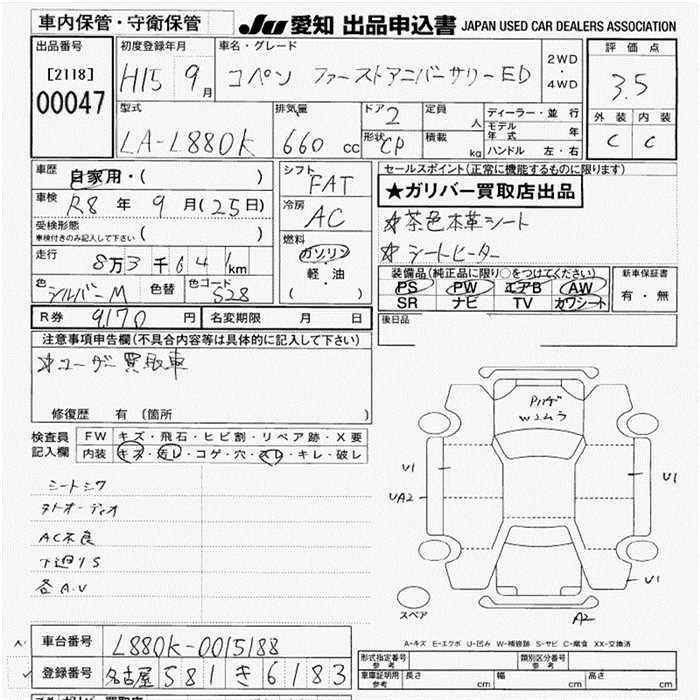 車内保管・守衛保管
JU 愛知 出品申込書 JAPAN USED CAR DEALERS ASSOCIATION
出品番号
[2118]
00047
初度登録年月
H15 9月
車名・グレード
コペン ファーストアニバーサリーED
2WD
・
4WD
評価点
3.5
外装 内装
C C
型式
LA-L880K
排気量
660 cc
ドア 2
形状 CP
定員 人
積載 kg
ディーラー・並行
モデル年式 年
ハンドル 左・右
車歴
自家用・( )
車検
R8 年 9 月(25日)
受検形態
車検付きのみ記入して下さい ( )
走行
8万3千641km
色 シルバーM 色替 色コード S28
シフト
FAT
冷房
AC
燃料
ガソリン
軽・油
( )
セールスポイント(正常に機能するものに限ります)
★ガリバー買取店出品
☆茶色本革シート
☆シートヒーター
装備品(純正品に限り○をつけてください)
PS PW エアB AW
SR ナビ TV カワシート
新車保証書
有・無
R券 9,170 円 名変期限 月 日
後日品
注意事項申告欄(不具合内容等は具体的に記入して下さい)
☆ユーザー買取車
修復歴 有 (箇所 )
検査員
記入欄
FW キズ・飛石・ヒビ割・リペア跡・X要
内装 キズ・汚レ・コゲ・穴・スレ・キレ・破レ
シートシワ
ヌトオーディオ
AC不良
下廻りS
各A.U
Pハゲ
Wムラ
U1
UA2
U1
U1
A2
スペア
A-キズ E-エクボ U-凹み W-補修跡 S-サビ C-腐食 XX-交換済
車台番号 L880K-0015188
登録番号 名古屋 581 き 6183
形式指定番号
参考
類別区分番号
参考
車庫証明用
参考
長さ cm 幅 cm 高さ cm